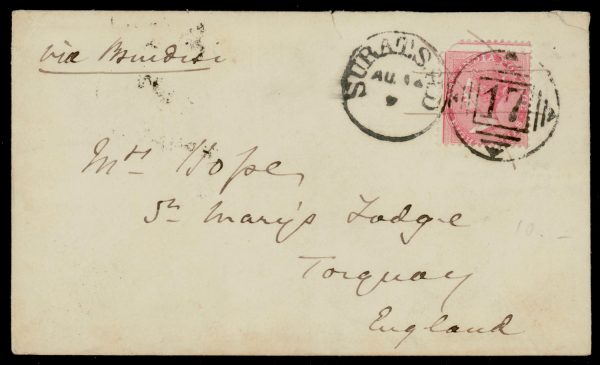 via Brindisi
SURAT.S
AU 14
17
Mrs Hope,
St. Mary's Lodge
Torquay
England
10.-